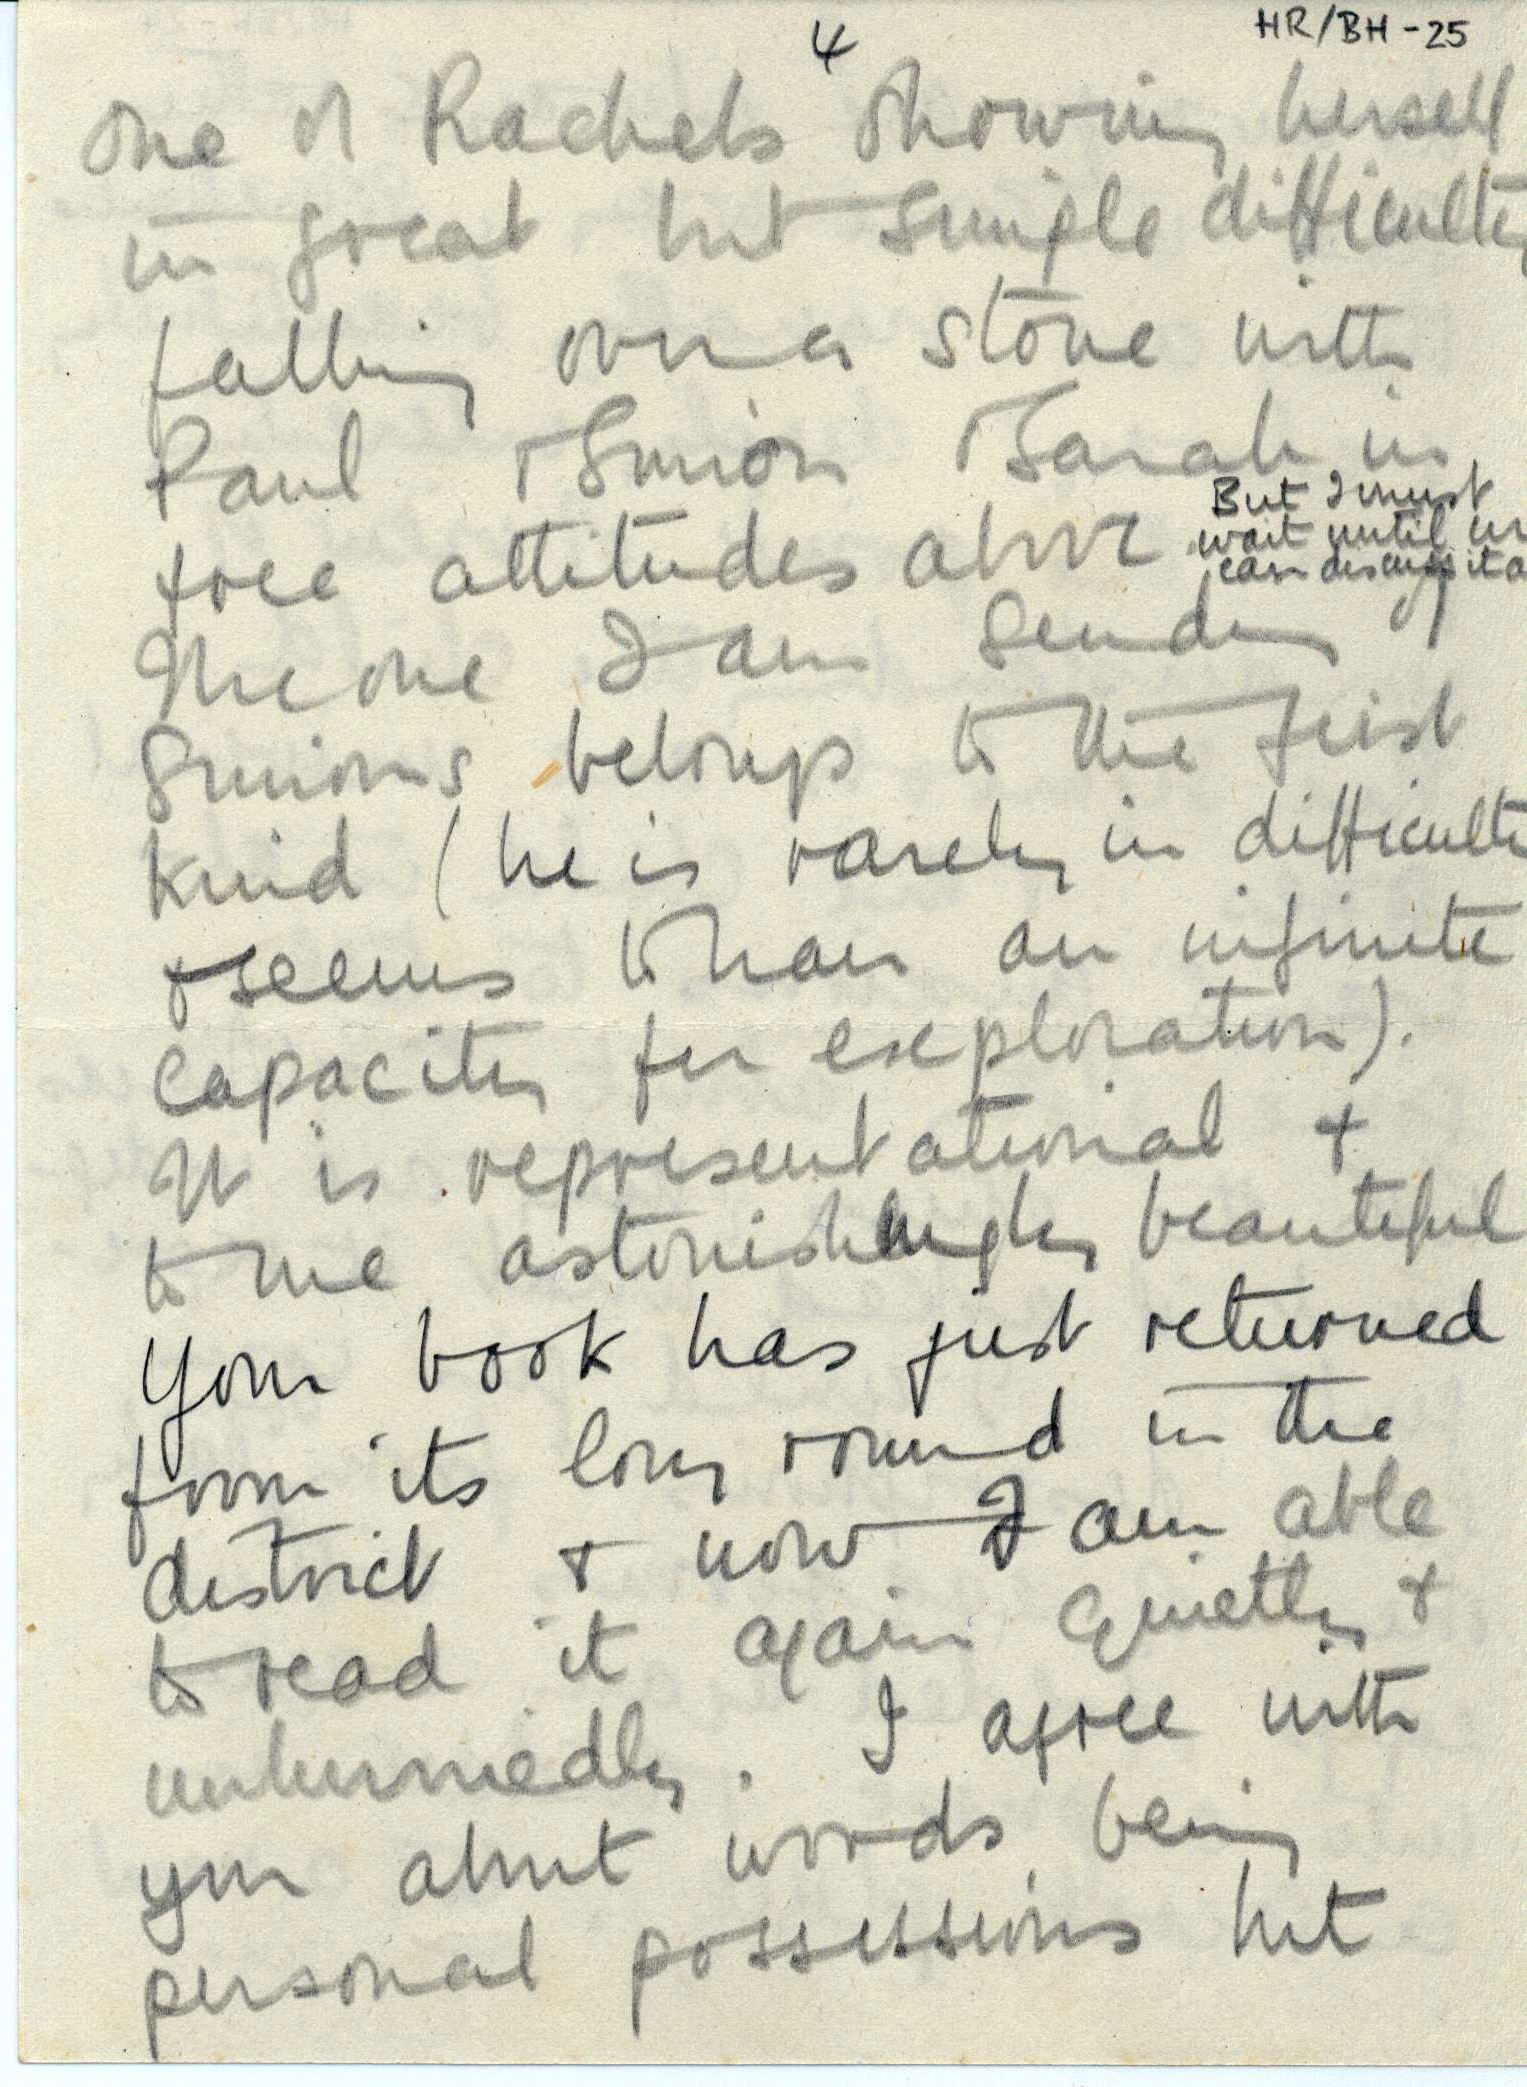 4
HR/BH-25
one of Rachels showing herself
in great but simple difficulties
falling over a stone with
Paul & Simon & Sarah in
free attitudes above
But I must
wait until we
can discuss it a
The one I am sending
Simons belongs to the first
kind (he is rarely in difficulti
& seems to have an infinite
capacity for exploration).
It is representational &
to me astonishingly beautiful
Your book has just returned
from its long round in the
district & now I am able
to read it again quietly &
unhurriedly. I agree with
you about words being
personal possessions but